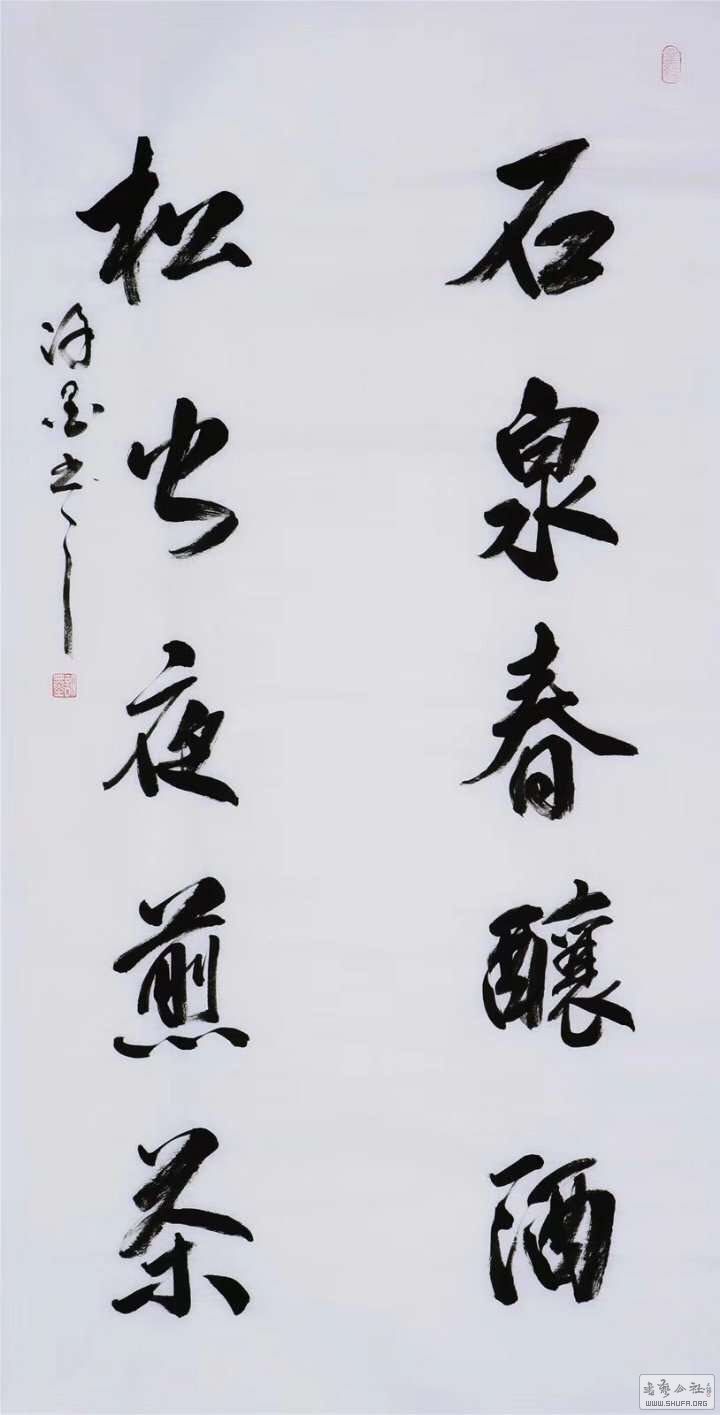 石泉春釀酒
松火夜煎茶
書藝公社
WWW.SHUFA.ORG